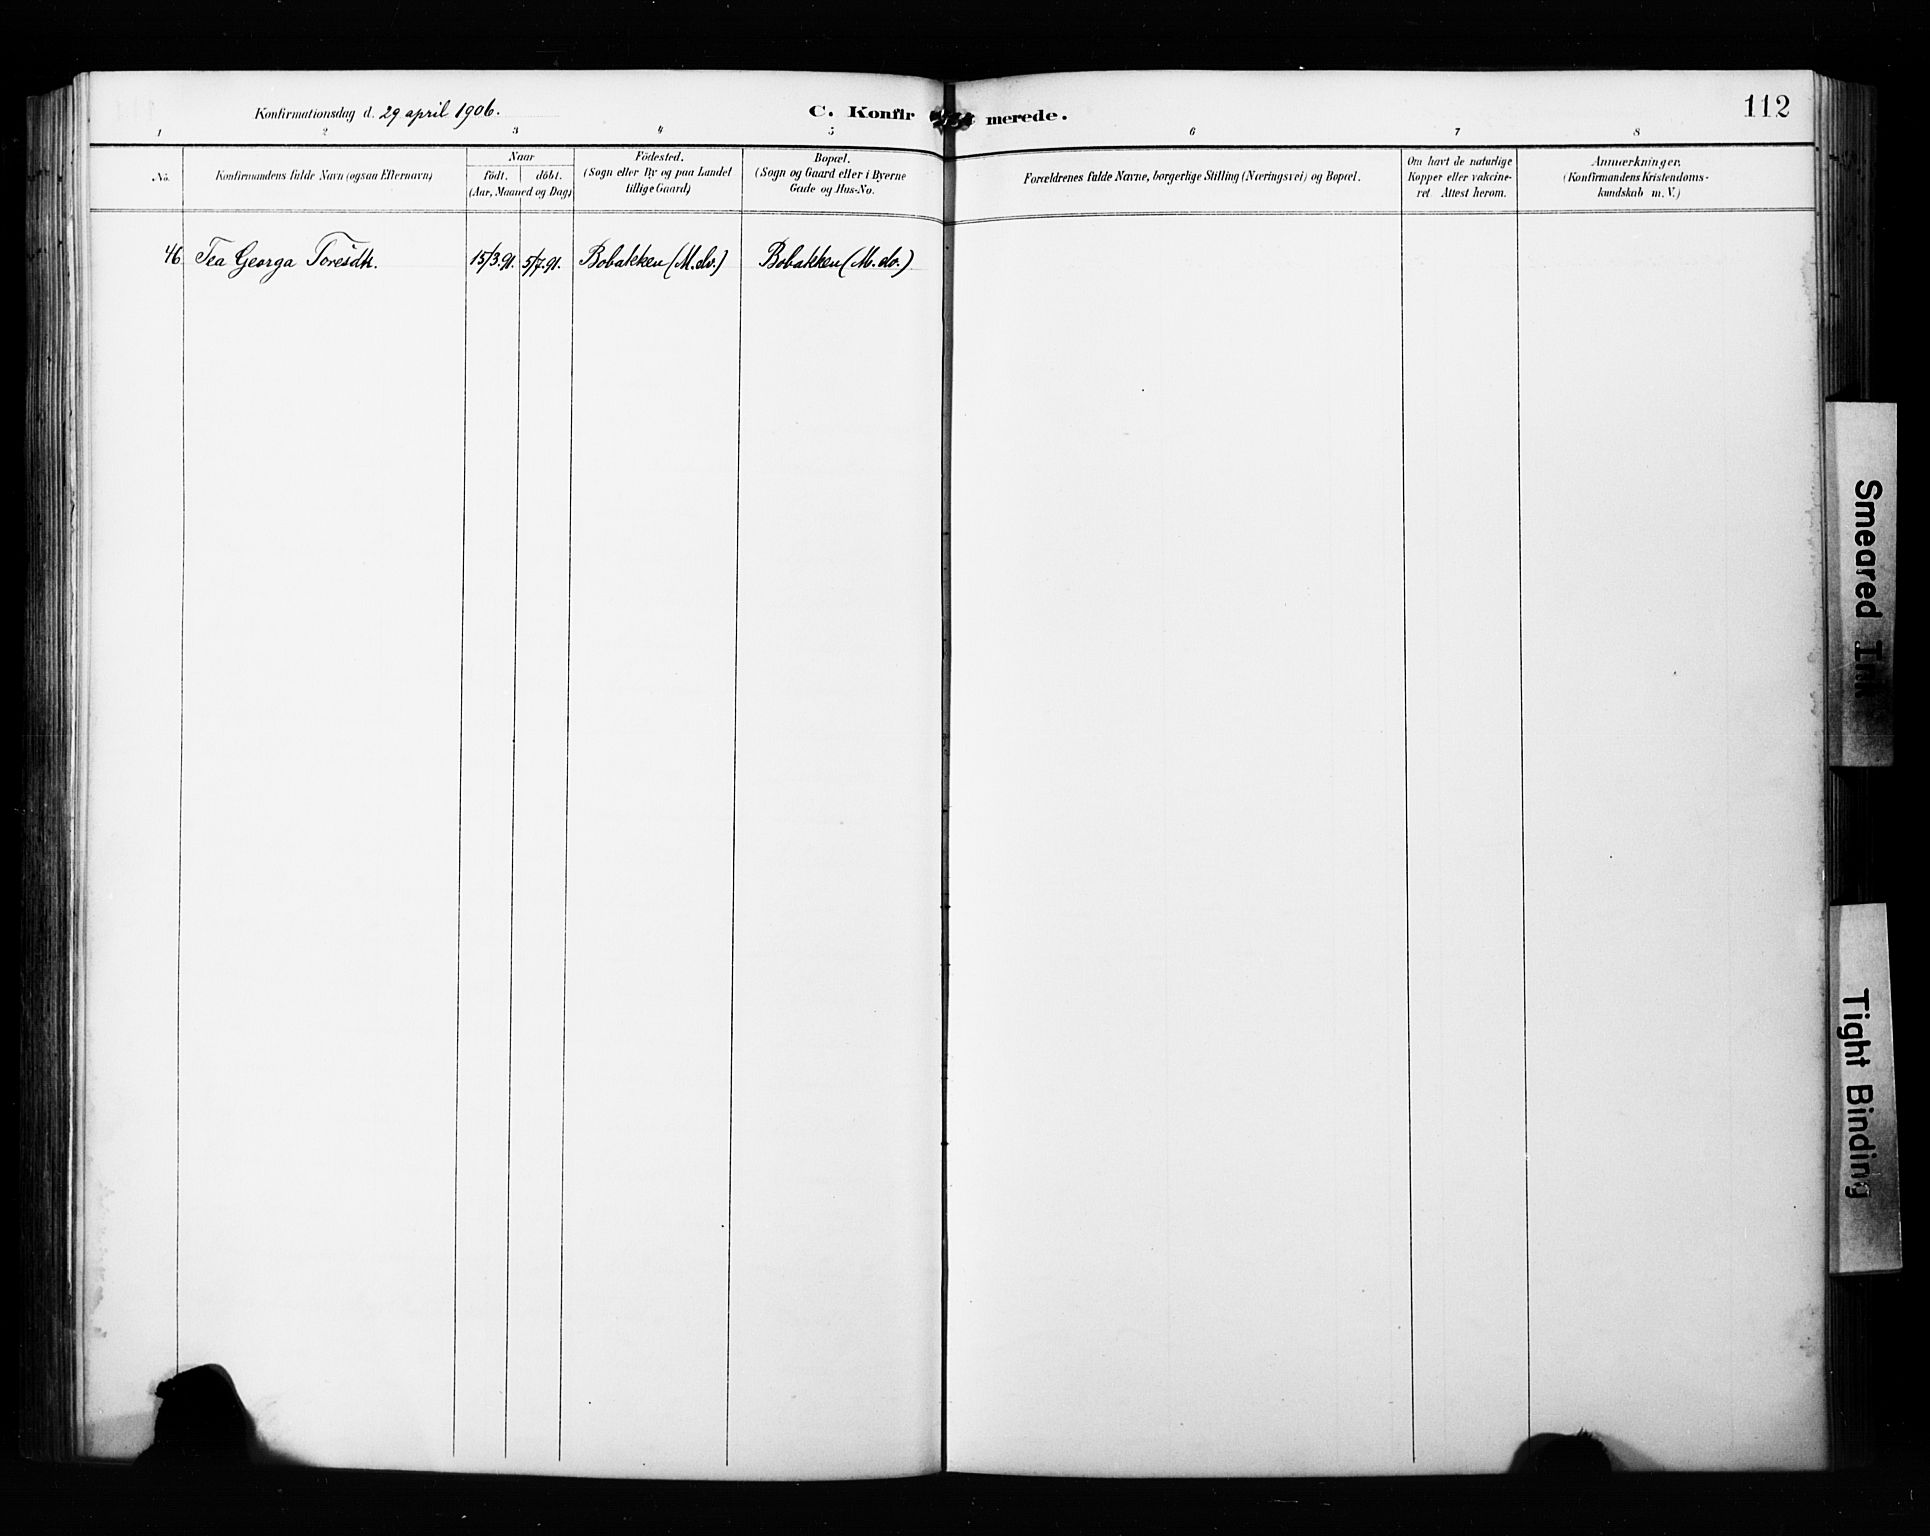 Konfirmationsdag d. 29 april 1906.
C. Konfirmerede.
112
1 2 3 4 5 6 7 8
No.
Konfirmandens fulde Navn (ogsaa Efternavn)
Naar
födt. döbt.
(Aar, Maaned og Dag)
Födested.
(Sogn eller By og paa Landet
tillige Gaard)
Bopæl.
(Sogn og Gaard eller i Byerne
Gade og Hus-No.
Forældrenes fulde Navne, borgerlige Stilling (Næringsvei) og Bopæl.
Om havt de naturlige
Kopper eller vakcine-
ret Attest herom.
Anmærkninger.
(Konfirmandens Kristendoms-
kundskab m. V.)
46 Tea Georga Toresdtr. 15/3.91. 5/7.91. Bobakken (M.do.) Bobakken (M.do.)
Smeared Ink
Tight Binding